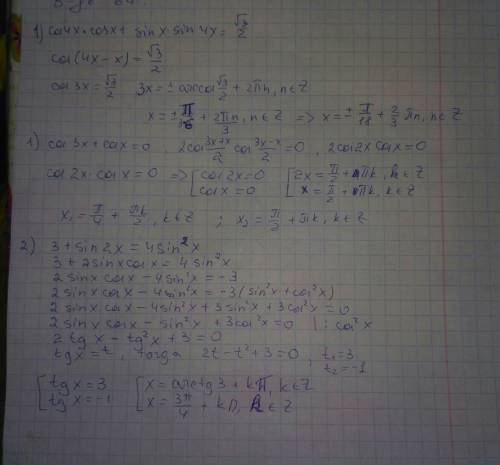 1) cos4x·cosx + sinx·sin4x = √3/2
cos(4x-x) = √3/2
cos3x = √3/2   3x = ± arccos √3/2 + 2πn, n∈Z
x = ± π/3·6 + 2πn/3, n∈Z ⇒ x = ± π/18 + 2/3 πn, n∈Z
1) cos3x + cosx = 0, 2cos (3x+x)/2 cos (3x-x)/2 = 0, 2cos2x cosx = 0
cos2x·cosx = 0 ⇒ [cos2x=0   [2x = π/2 + πk, k∈Z
cosx = 0   x = π/2 + πk, k∈Z
x₁ = π/4 + πk/2, k∈Z ; x₂ = π/2 + πk, k∈Z
2) 3 + sin2x = 4sin²x
3 + 2sinxcosx = 4sin²x
2sinxcosx - 4sin²x = -3
2sinxcosx - 4sin²x = -3(sin²x + cos²x)
2sinxcosx - 4sin²x + 3sin²x + 3cos²x = 0
2sinxcosx - sin²x + 3cos²x = 0 |: cos²x
2tgx - tg²x + 3 = 0
tgx = t, тогда 2t - t² + 3 = 0, t₁ = 3
t₂ = -1
[tgx = 3   [x = arctg3 + kπ, k∈Z
tgx = -1   x = 3π/4 + kπ, k∈Z